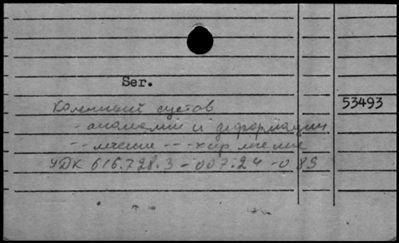 Ser.
Коленный сустав 53493
- аномалии и деформации
- - лечение - - - хир лечение
УДК 616.728.3-007.24-089